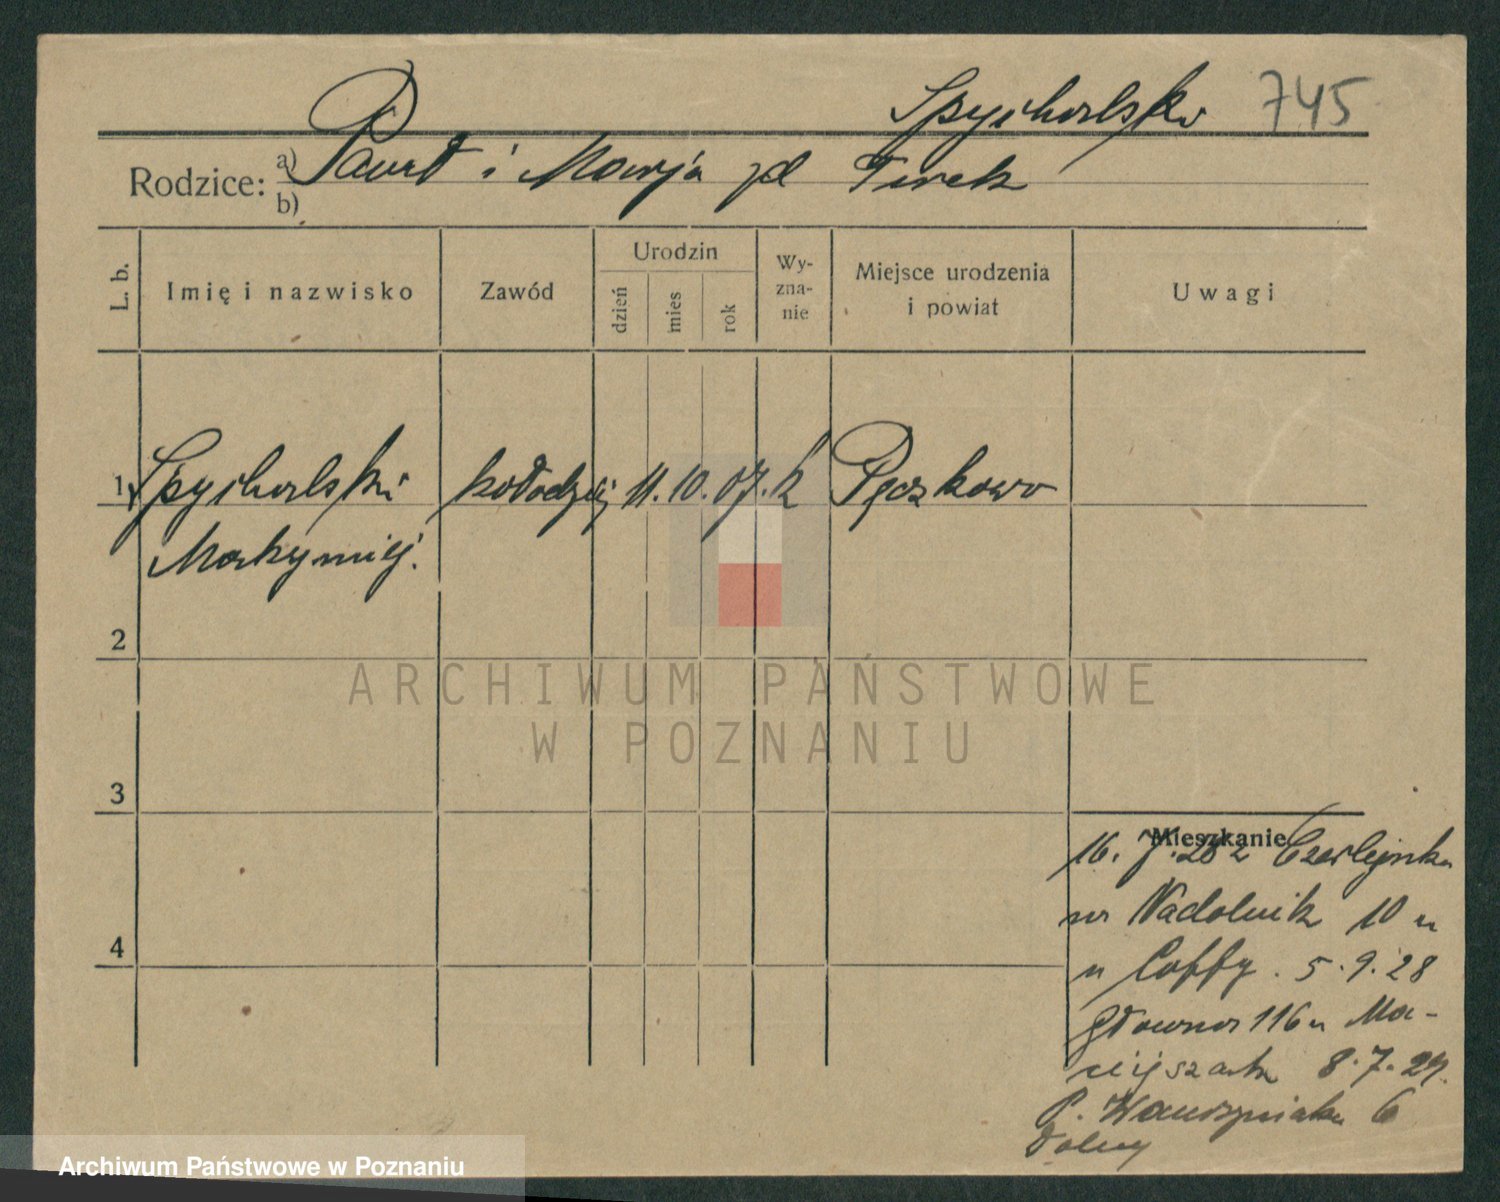 Spychalski 745
Rodzice: a) Paweł i Marja zd Turek
b)
L. b. Imię i nazwisko Zawód Urodzin dzień mies rok Wyznanie Miejsce urodzenia i powiat Uwagi
1 Spychalski kołodziej 11. 10. 07. k Pęczkowo
2
3
4
Mieszkanie
16. 7. 28 z Czerlejnka
Nadolnik 10 u
u Coffy. 5.9.28
Główna 116 u Ma-
ciejszaka 8.7.29.
P. Wawrzyniaka 6
ARCHIWUM PAŃSTWOWE
W POZNANIU
Archiwum Państwowe w Poznaniu